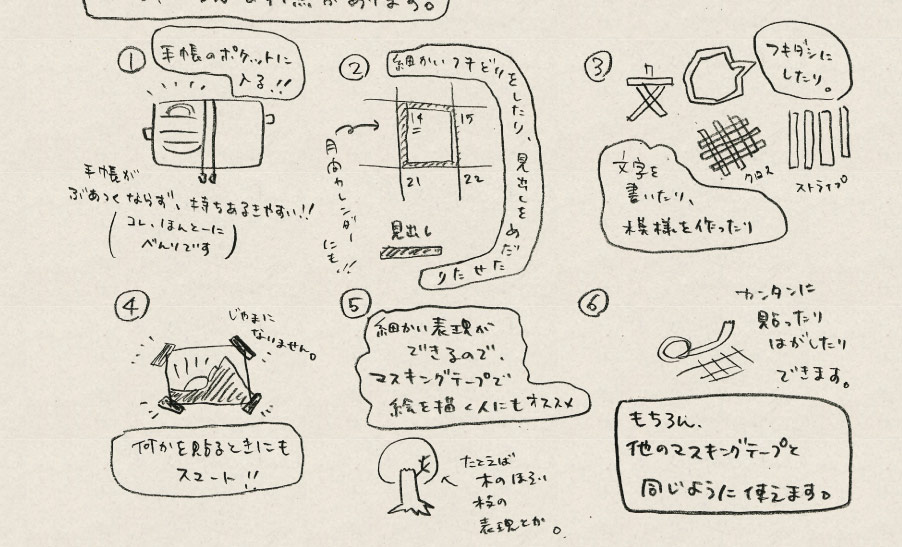 があります。
①
手帳のポケットに
入る!!
手帳が
ぶあつくならず、持ちあるきやすい!!
コレ、ほんとーに
べんりです
②
細かいフチどりをしたり、見出しをめだたせたり
14
15
21
22
月間カレンダーにも!!
見出し
③
文
フキダシに
したり。
クロス
ストライプ
文字を
書いたり、
模様を作ったり
④
じゃまに
なりません。
何かを貼るときにも
スマート!!
⑤
細かい表現が
できるので、
マスキングテープで
絵を描く人にもオススメ
たとえば
木のほそい
枝の
表現とか。
⑥
カンタンに
貼ったり
はがしたり
できます。
もちろん、
他のマスキングテープと
同じように使えます。